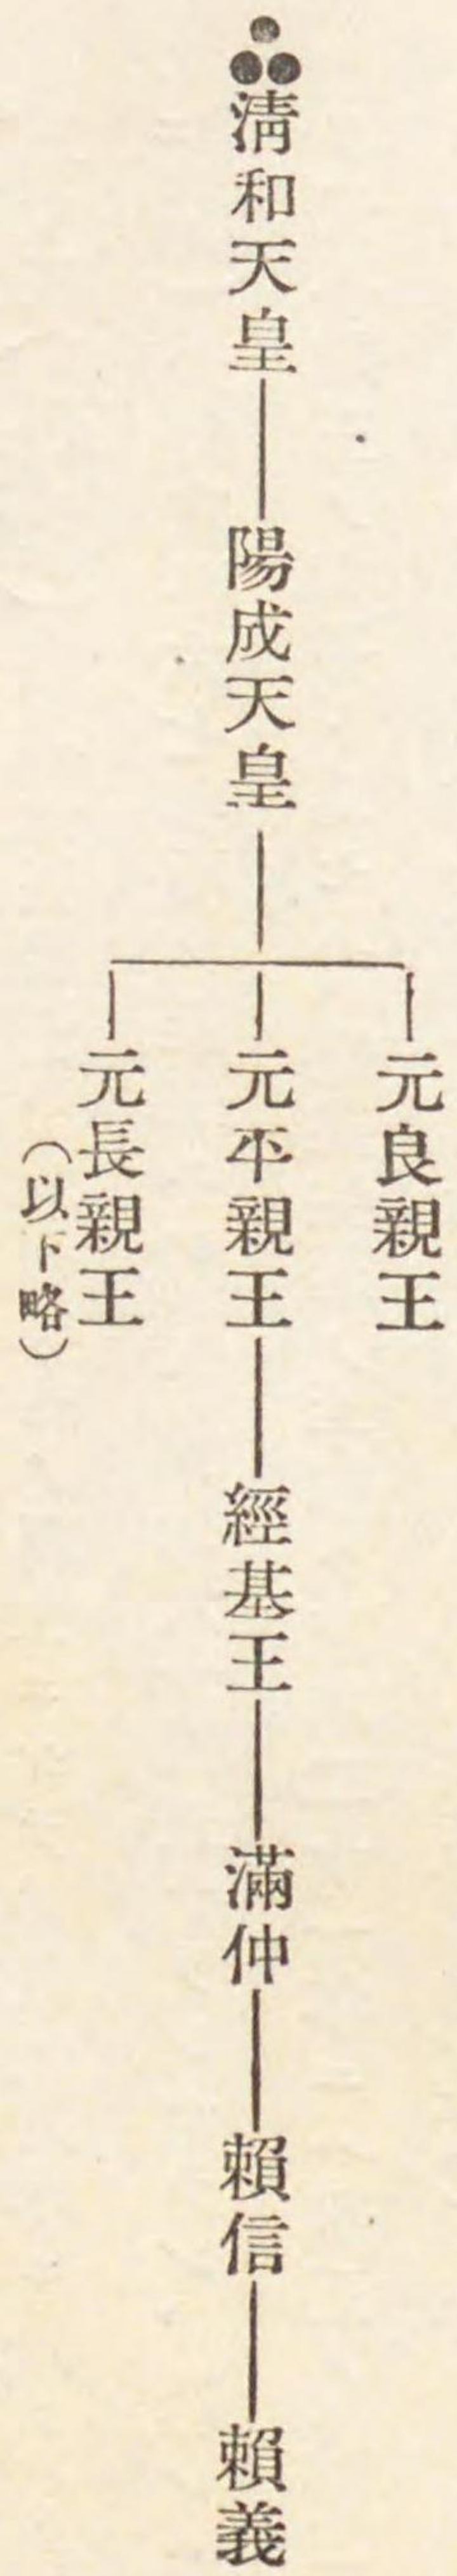 清和天皇
陽成天皇
元良親王
元平親王
經基王
滿仲
賴信
賴義
元長親王
(以下略)